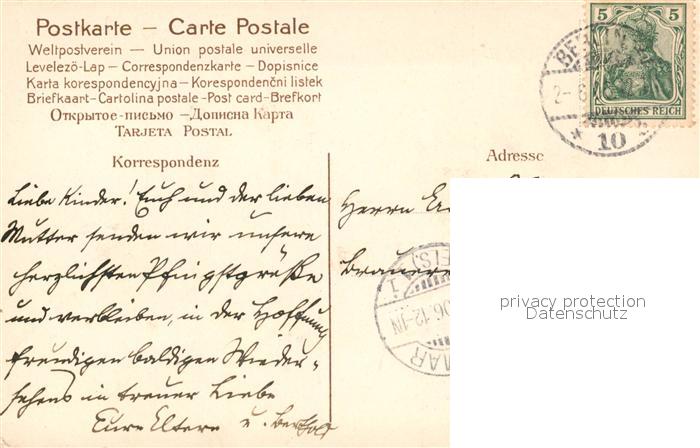 Postkarte – Carte Postale
Weltpostverein — Union postale universelle
Levelező-Lap – Correspondenzkarte – Dopisnice
Karta korespondencyjna – Korespondenčni listek
Briefkaart – Cartolina postale – Post card – Brefkort
Открытое-письмо – Дописна Карта
Tarjeta Postal
5 5
DEUTSCHES REICH
BERLIN
2-6
* 10
Korrespondenz
Adresse
Liebe Kinder! Euch und der lieben
Mutter senden wir unsere
herzlichsten Pfingstgrüße
und verbleiben, in der Hoffnung
freudigen baldigen Wieder-
sehens in treuer Liebe
Eure Eltern u. Berthold
Herrn
Brauere
MAR
06.12-1N
privacy protection
Datenschutz